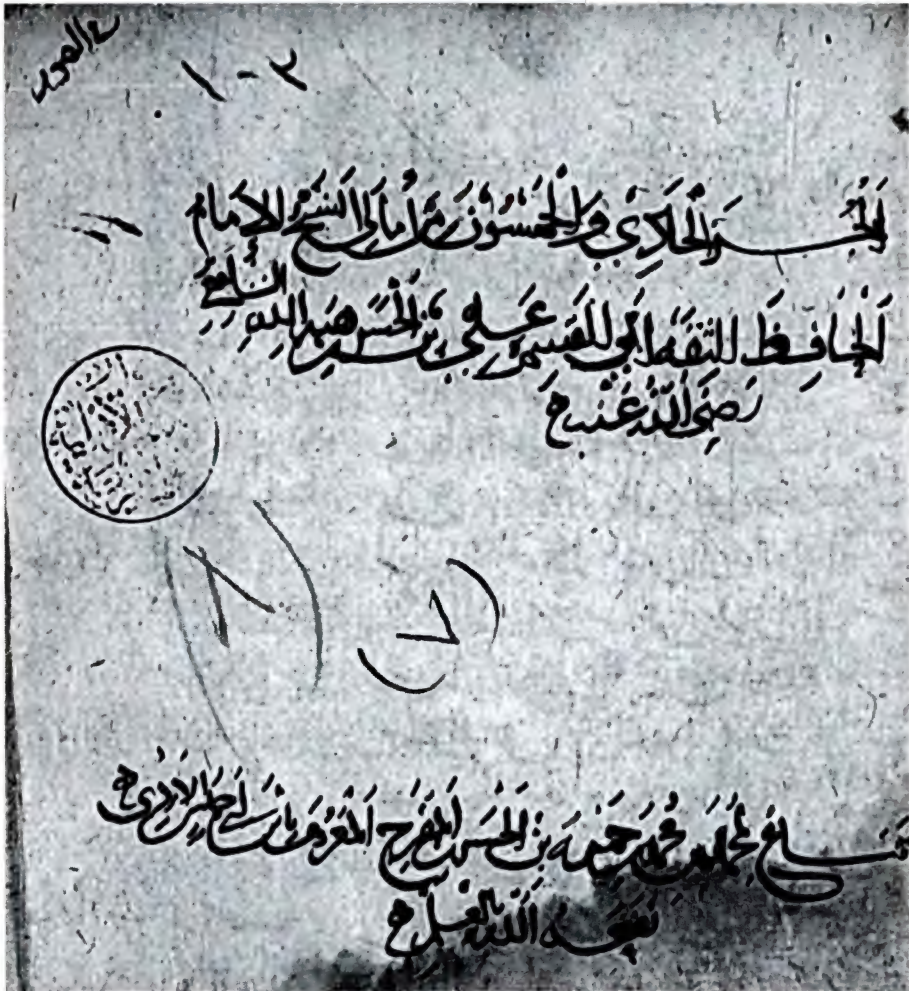 ١-٣
الجزء الحادي والخمسون من أمالي الشيخ الإمام
الحافظ الثقة أبي القسم علي بن الحسن هبة الله الشافعي
رضي الله عنه
(٨) (٧)
سماع لمحمد بن حمزة بن الحسن المفرج المعروف بابن
نفعه الله بالعلم